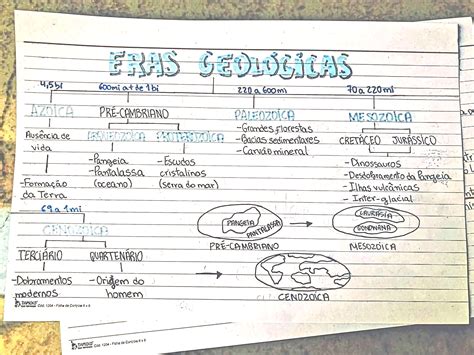 ERAS GEOLÓGICAS
4,5bi 600mi até de 1bi 220 a 600m 70 a 220mi
AZOICA PRÉ-CAMBRIANO PALEOZOICA MESOZOICA
Ausência de vida
-Formação da Terra
ARQUEOZOICA PROTEROZOICA
-Pangeia
-Pantalassa (oceano)
-Escudos cristalinos (serra do mar)
-Grandes florestas
-Bacias sedimentares
-Carvão mineral
CRETÁCEO JURÁSSICO
-Dinossauros
-Desdobramento da Pangeia
-Ilhas vulcânicas
-Inter-glacial
69 a 1mi
CENOZOICA
TERCIÁRIO QUARTENÁRIO
-Dobramentos modernos
-Origem do homem
PANGEIA
PANTALASSA
PRÉ-CAMBRIANO
LAURÁSIA
GONDWANA
MESOZOICA
CENOZOICA